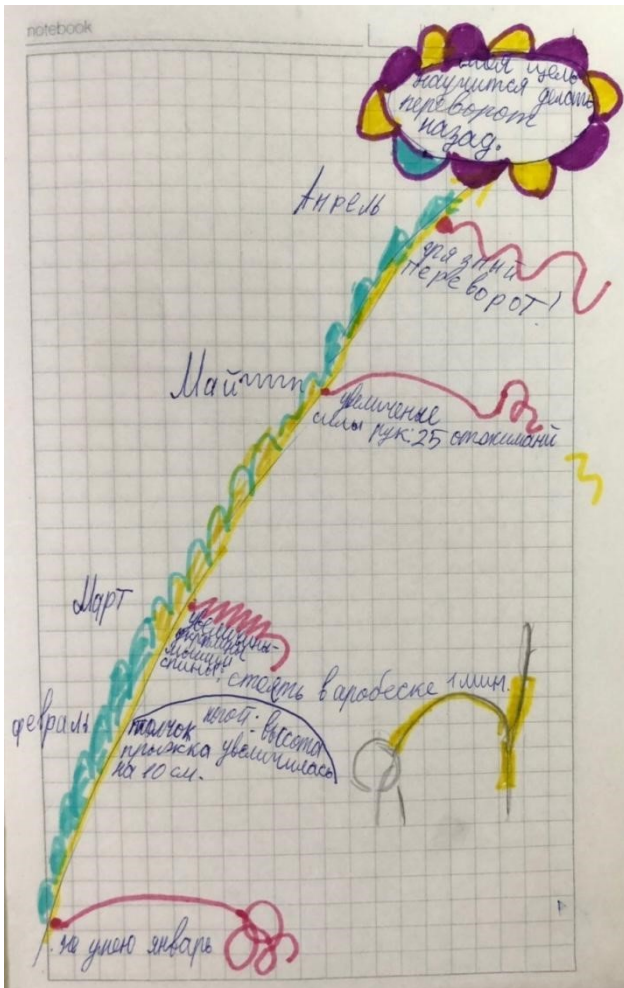 notebook
моя цель
научится делать
переворот
назад.
Апрель
грязный
переворот!
Май
увеличение
силы рук: 25 отжиманй
Март
мышцы
спины: стоять в аробеске 1 мин.
февраль
толчок ногой: высота
прыжка увеличилась
на 10 см.
не умею январь